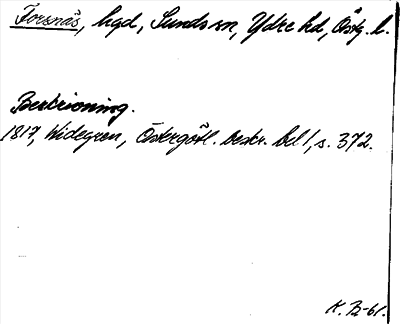 Forsnäs, hgd, Sunds sn, Ydre hd, Östg. l.
Beskrivning.
1817, Widegren, Östergötl. beskr. bd 1, s. 372.
K. B-61.